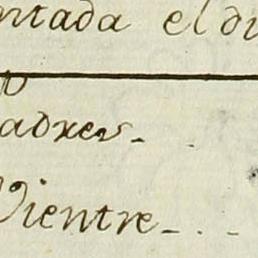 ntada el di
adres.
Vientre